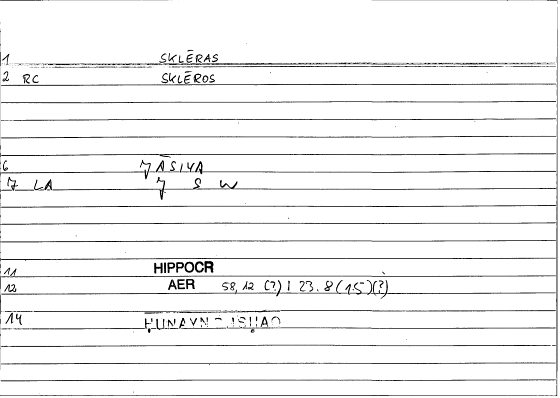 1 SKLĒRAS
2 RC SKLĒROS
6 JASIYA
7 LA J S W
11 HIPPOCR
12 AER 58,12 (?) | 23.8 (15) (?)
14